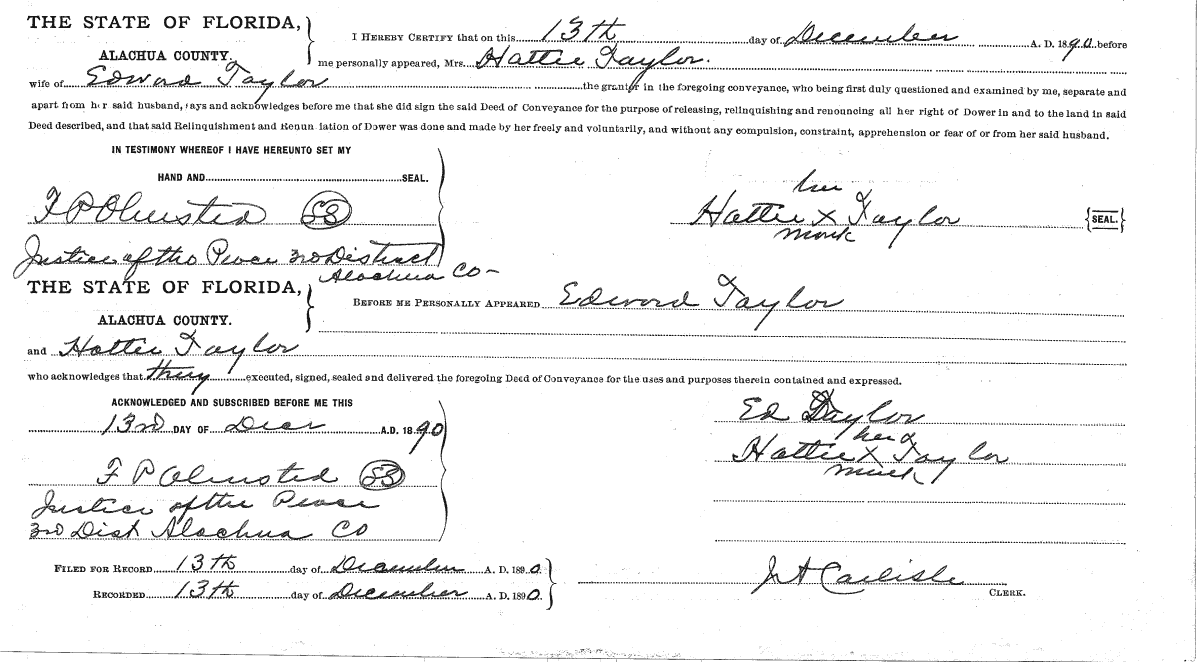 THE STATE OF FLORIDA,
ALACHUA COUNTY.
I HEREBY CERTIFY that on this 13th day of December A. D. 1890 before
me personally appeared, Mrs. Hattie Taylor.
wife of Edward Taylor the grantor in the foregoing conveyance, who being first duly questioned and examined by me, separate and
apart from her said husband, says and acknowledges before me that she did sign the said Deed of Conveyance for the purpose of releasing, relinquishing and renouncing all her right of Dower in and to the land in said
Deed described, and that said Relinquishment and Renun iation of Dower was done and made by her freely and voluntarily, and without any compulsion, constraint, apprehension or fear of or from her said husband.
IN TESTIMONY WHEREOF I HAVE HEREUNTO SET MY
HAND AND SEAL.
F P Olmsted
Justice of the Peace 3rd District
Alachua Co
her
Hattie X Taylor {SEAL.}
mark
THE STATE OF FLORIDA,
ALACHUA COUNTY.
BEFORE ME PERSONALLY APPEARED Edward Taylor
and Hattie Taylor
who acknowledges that they executed, signed, sealed and delivered the foregoing Deed of Conveyance for the uses and purposes therein contained and expressed.
ACKNOWLEDGED AND SUBSCRIBED BEFORE ME THIS
13rd DAY OF Decr A.D. 1890
F P Olmsted
Justice of the Peace
3rd Dist Alachua Co
Ed Taylor
her
Hattie X Taylor
mark
FILED FOR RECORD 13th day of December A. D. 1890.
RECORDED 13th day of December A. D. 1890.
J A Carlisle
CLERK.